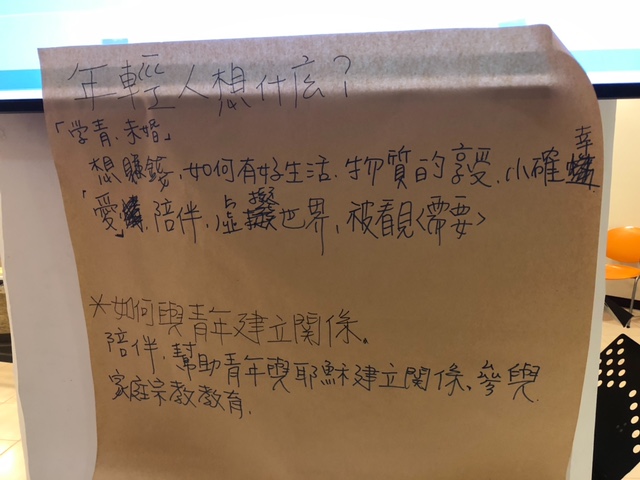 年輕人想什么？
「学青．未婚」
想賺錢．如何有好生活．物質的享受．小確幸
「愛」．陪伴．虛擬世界，被看見<需要>
*如何與青年建立關係。
陪伴．幫助青年與耶穌建立關係、參與
家庭宗教教育．